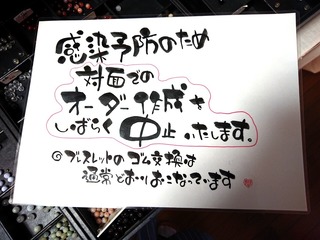 感染予防のため
対面での
オーダー作成を
しばらく中止いたします。
◎ブレスレットのゴム交換は
通常どおりおこなっています